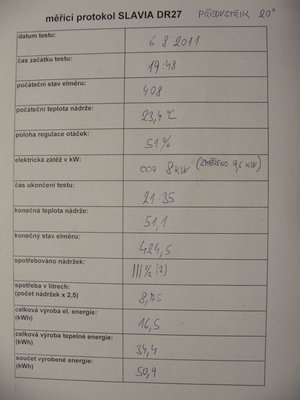 měřící protokol SLAVIA DR27 PŘEDVSTŘIK 20°
datum testu: 6-8 2011
čas začátku testu: 19.48
počáteční stav elměru: 408
počáteční teplota nádrže: 23,4 °C
poloha regulace otáček: 51%
elektrická zátěž v kW: CCA 8 KW (ZMĚŘENO 9,6 KW)
čas ukončení testu: 21-35
konečná teplota nádrže: 51,1
konečný stav elměru: 424,5
spotřebováno nádržek: III 1/2 (2)
spotřeba v litrech:
(počet nádržek x 2,5) 8,75
celková výroba el. energie:
(kWh) 16,5
celková výroba tepelné energie:
(kWh) 34,4
součet vyrobené energie:
(kWh) 50,9